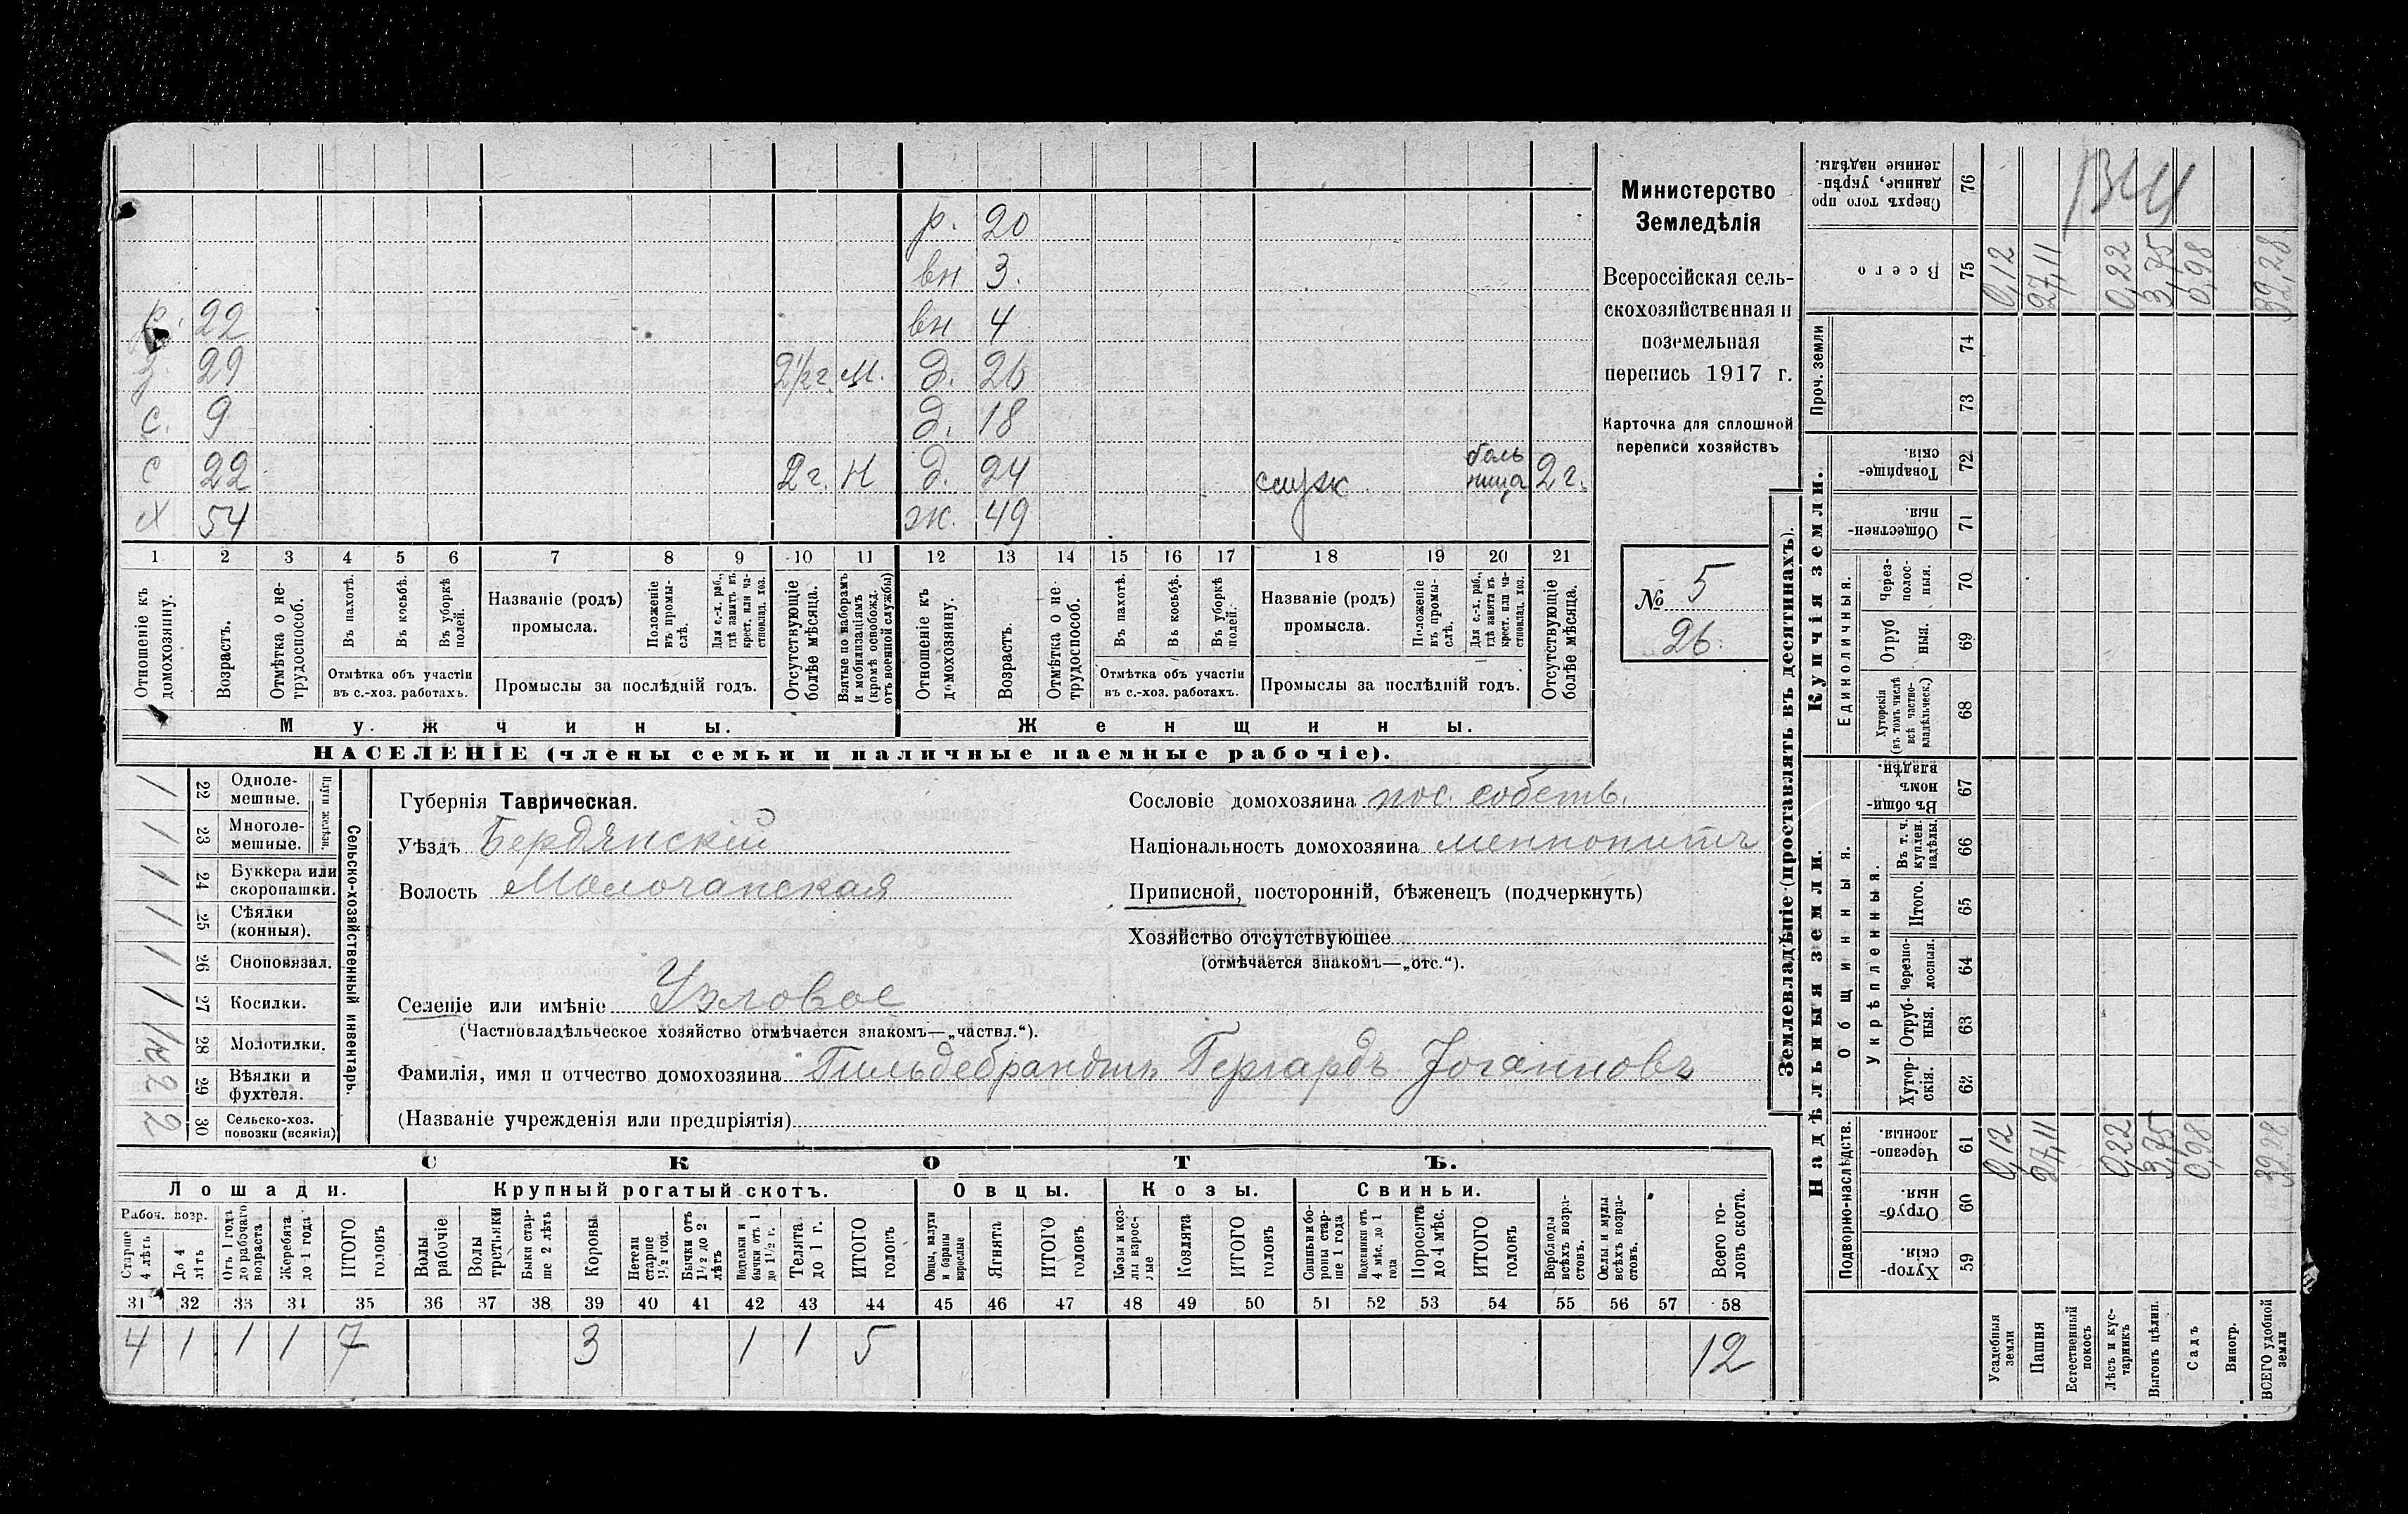 р. 20
вн 3.
р. 22 вн 4
з. 29 2½г. М. д. 26
с. 9 д. 18
с 22 2г. Н д. 24 служ больница 2г.
х 54 ж. 49
1 2 3 4 5 6 7 8 9 10 11 12 13 14 15 16 17 18 19 20 21
Отношеніе къ домохозяину.
Возрастъ.
Отмѣтка о нетрудоспособ.
Въ пахотѣ.
Въ косьбѣ.
Въ уборкѣ полей.
Отмѣтка объ участіи въ с.-хоз. работахъ.
Названіе (родъ) промысла.
Положеніе въ промыслѣ.
Для с.-х. раб., гдѣ занятъ въ крест. или частновлад. хоз.
Промыслы за послѣдній годъ.
Отсутствующіе болѣе мѣсяца.
Взятые по наборамъ и мобилизаціямъ (кромѣ освобожд. отъ военной службы)
Отношеніе къ домохозяину.
Возрастъ.
Отмѣтка о нетрудоспособ.
Въ пахотѣ.
Въ косьбѣ.
Въ уборкѣ полей.
Отмѣтка объ участіи въ с.-хоз. работахъ.
Названіе (родъ) промысла.
Положеніе въ промыслѣ.
Для с.-х. раб., гдѣ занята въ крест. или частновлад. хоз.
Промыслы за послѣдній годъ.
Отсутствующіе болѣе мѣсяца.
Мужчины.
Женщины.
НАСЕЛЕНІЕ (члены семьи и наличные наемные рабочіе).
Министерство
Земледѣлія
Всероссійская сель-
скохозяйственная и
поземельная
перепись 1917 г.
Карточка для сплошной
переписи хозяйствъ
№ 5
26.
Сельско-хозяйственный инвентарь.
Плуги желѣзн.
1 22 Одноле-мешные.
1 23 Многоле-мешные.
1 24 Буккера или скоропашки.
1 25 Сѣялки (конныя).
1 26 Сноповязал.
1 27 Косилки.
28 Молотилки.
2 29 Вѣялки и фухтеля.
2 30 Сельско-хоз. повозки (всякія)
Губернія Таврическая.
Уѣздъ Бердянскій
Волость Молочанская
Селеніе или имѣніе Узловое
(Частновладѣльческое хозяйство отмѣчается знакомъ—„частвл.“).
Фамилія, имя и отчество домохозяина Гильдебрандтъ Гергардъ Іоганновъ
(Названіе учрежденія или предпріятія)
Сословіе домохозяина пос. собств.
Національность домохозяина меннонитъ
Приписной, посторонній, бѣженецъ (подчеркнуть)
Хозяйство отсутствующее
(отмѣчается знакомъ—„отс.“).
СКОТЪ.
Лошади. Крупный рогатый скотъ. Овцы. Козы. Свиньи.
Рабоч. возр.
Старше 4 лѣтъ
До 4 лѣтъ
Отъ 1 года до рабочаго возраста
Жеребята до 1 года
ИТОГО головъ
Волы рабочіе
Волы третьяки
Быки старше 2 лѣтъ
Коровы
Нетели старше 1½ год.
Бычки отъ 1½ до 2 лѣтъ
Подтелки и бычки отъ 1 до 1½ г.
Телята до 1 г.
ИТОГО головъ
Овцы, валухи и бараны взрослые
Ягнята
ИТОГО головъ
Козы и козлы взрослые
Козлята
ИТОГО головъ
Свиньи и боровы старше 1 года
Подсвинки отъ 4 мѣс. до 1 года
Поросята до 4 мѣс.
ИТОГО головъ
Верблюды всѣхъ возрастовъ.
Ослы и мулы всѣхъ возрастовъ.
Всего головъ скота.
31 32 33 34 35 36 37 38 39 40 41 42 43 44 45 46 47 48 49 50 51 52 53 54 55 56 57 58
4 1 1 1 7 3 1 1 5 12
Землевладѣніе (проставлять въ десятинахъ).
Надѣльныя земли.
Купчія земли.
Проч. земли
Подворно-наслѣдств.
Общинныя.
Укрѣпленныя.
Единоличныя.
Хуторскія. 59
Отрубныя. 60
Черезполосныя. 61 0,12 27,11 0,22 3,75 0,98 32,28
Хуторскія. 62
Отрубныя. 63
Черезполосныя. 64
Итого. 65
Въ т. ч. куплен. надѣлы. 66
Въ общинномъ владѣн. 67
Хуторскія (въ томъ числѣ всѣ частновладѣльческ.) 68
Отрубныя. 69
Черезполосныя. 70
Общественныя. 71
Товарищескія. 72
73
74
Всего 75 0,12 27,11 0,22 3,75 0,98 32,28
Сверхъ того проданные, укрѣпленные надѣлы. 76
Усадебныя земли
Пашня
Естественный покосъ
Лѣсъ и кустарникъ
Выгонъ цѣлин.
Садъ
Виногр.
ВСЕГО удобной земли